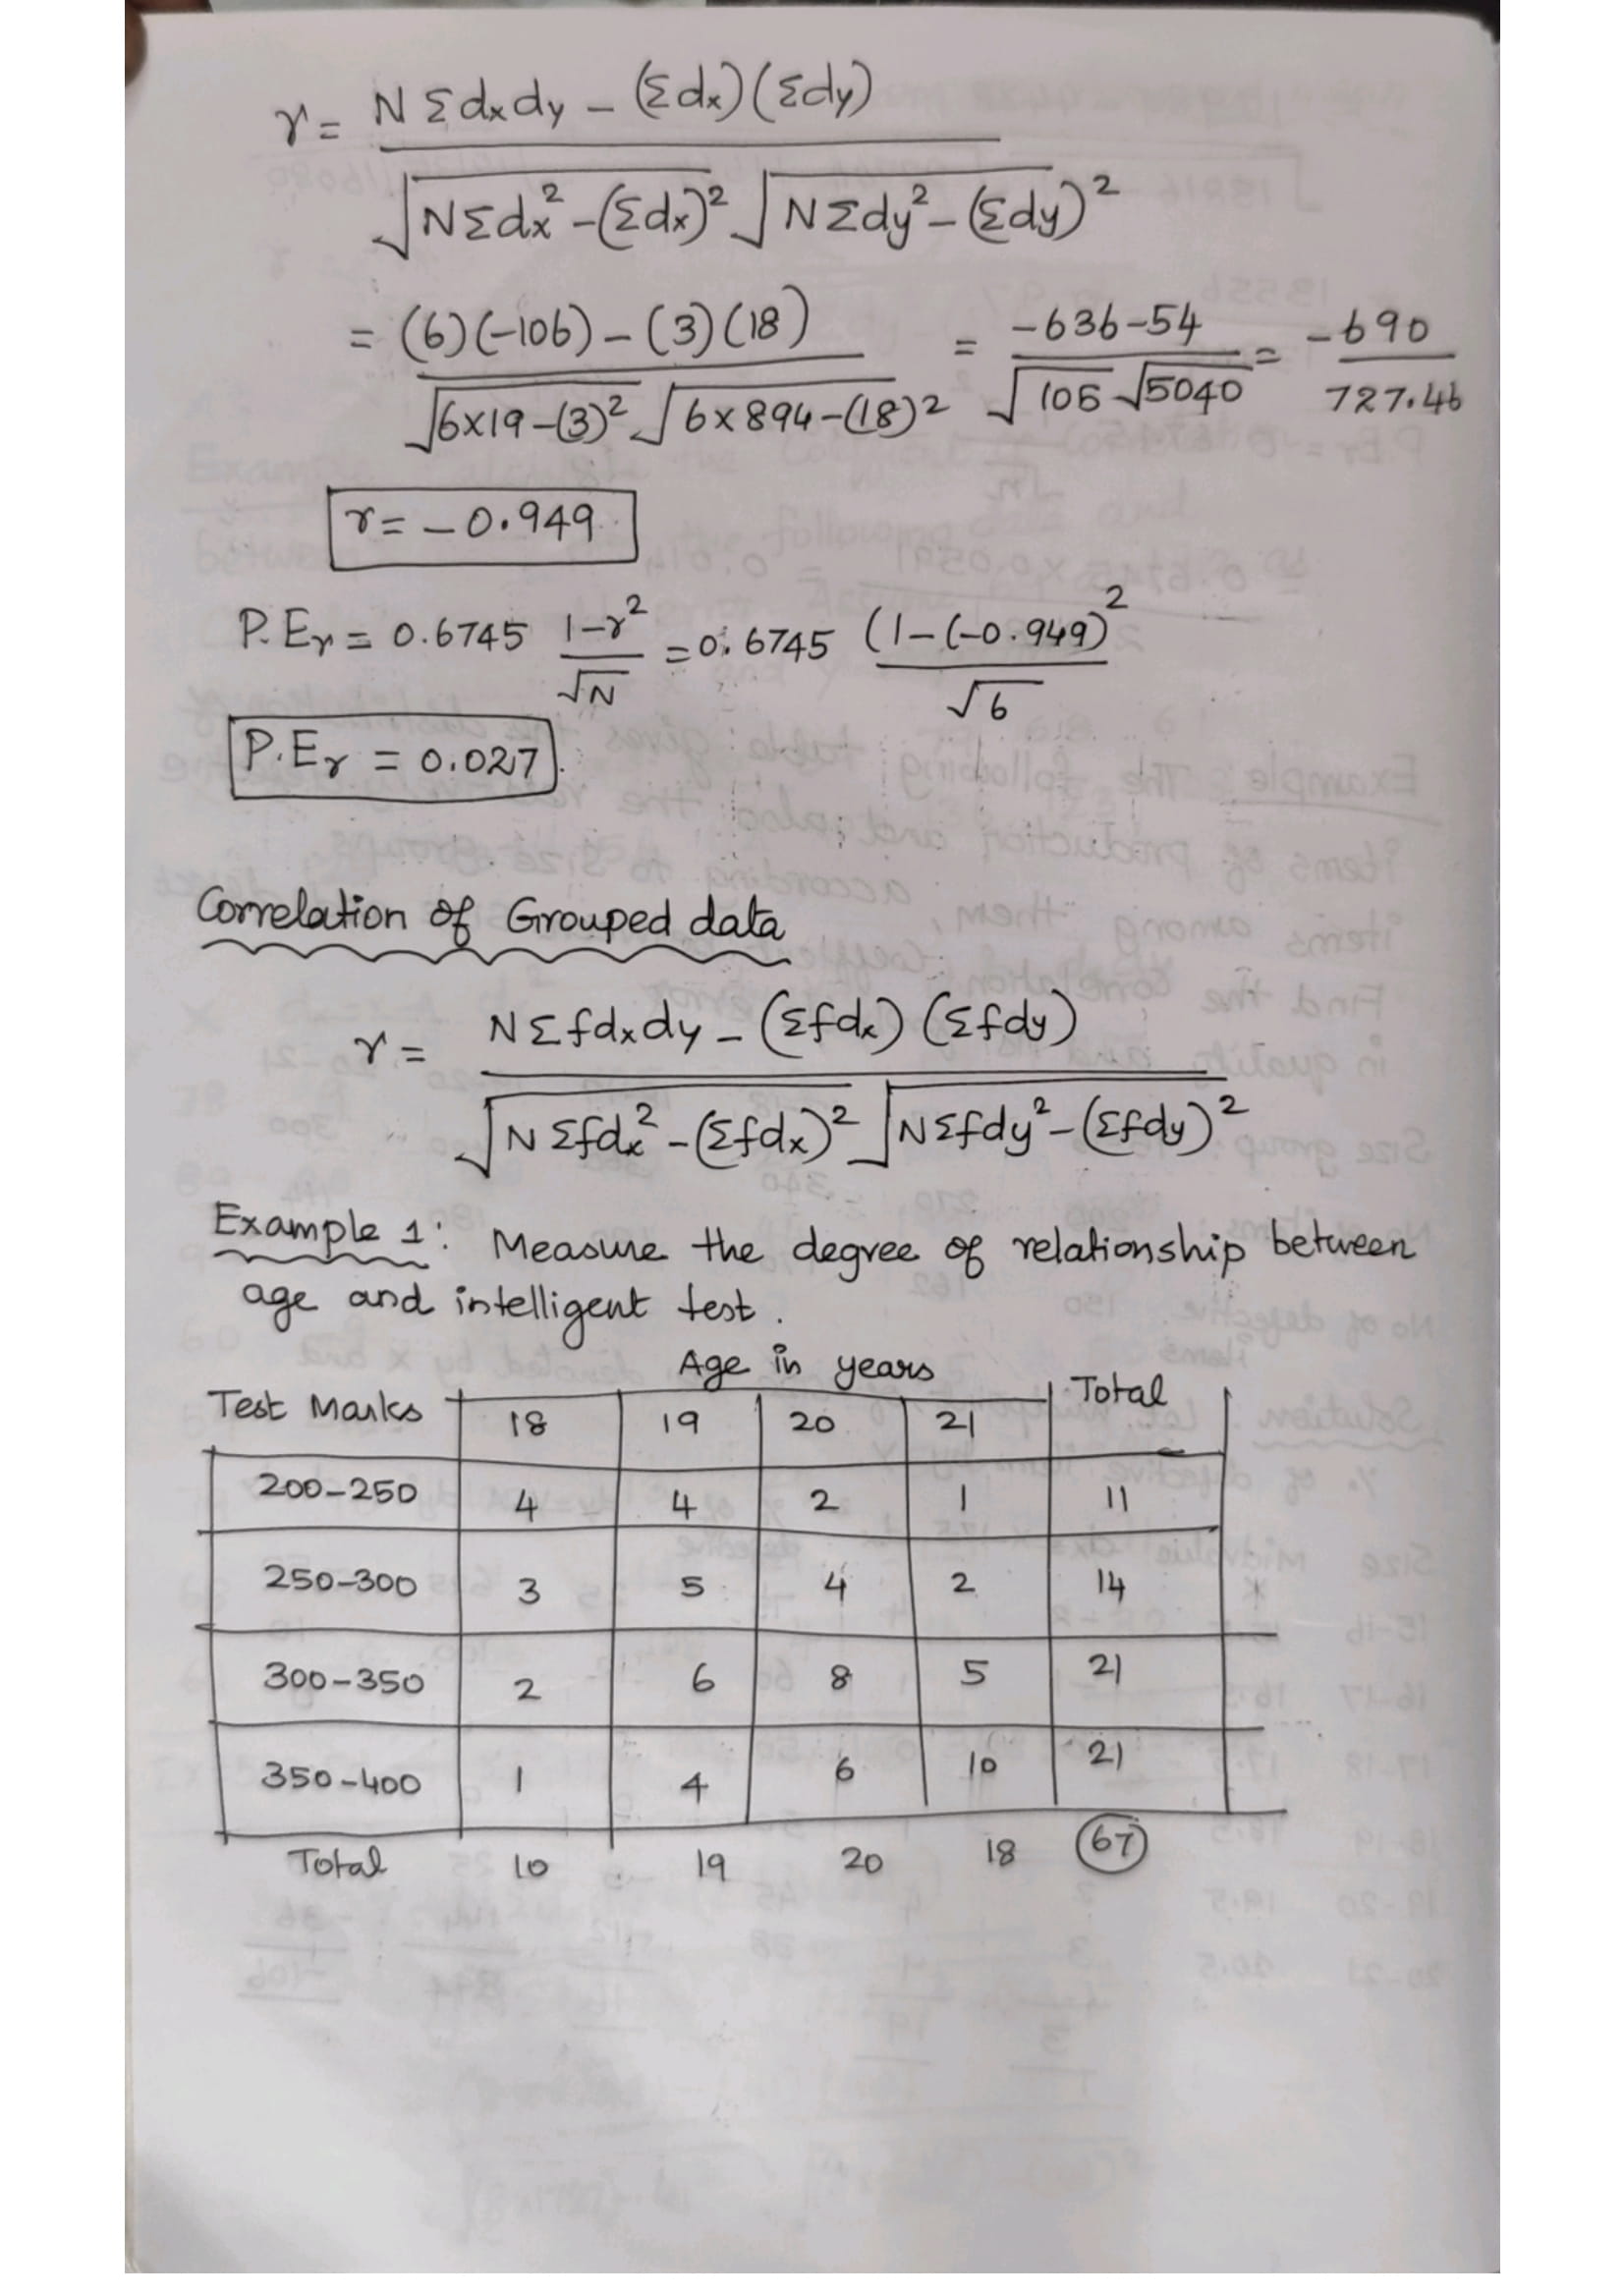 r = N Σdxdy - (Σdx)(Σdy)
√NΣdx² - (Σdx)² √NΣdy² - (Σdy)²
= (6)(-106) - (3)(18) = -636-54 = -690
√6x19-(3)² √6x894-(18)² √105 √5040 727.46
r = -0.949
P.Er = 0.6745 1-r² = 0.6745 (1-(-0.949)²
√N √6
P.Er = 0.027
Correlation of Grouped data
r = NΣfdxdy - (Σfdx)(Σfdy)
√NΣfdx² - (Σfdx)² √NΣfdy² - (Σfdy)²
Example 1: Measure the degree of relationship between
age and intelligent test.
Age in years
Test Marks 18 19 20 21 Total
200-250 4 4 2 1 11
250-300 3 5 4 2 14
300-350 2 6 8 5 21
350-400 1 4 6 10 21
Total 10 19 20 18 67